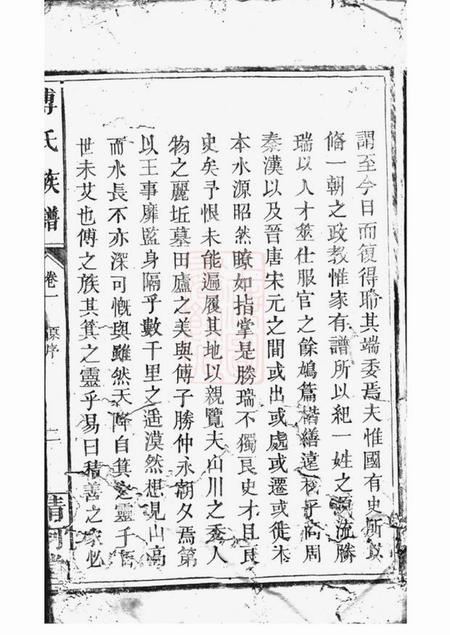 謂至今日而復得聆其端委焉夫惟國有史所以
脩一朝之政教惟家有譜所以紀一姓之源流勝
瑞以人才筮仕服官之餘鳩篇楷繕遠於商周
秦漢以及晉唐宋元之間或出或處或遷或徙木
本水源昭然瞭如指掌是勝瑞不獨良史才且良
史矣予恨未能遍履其地以親覽夫山川之秀人
物之麗坵墓田廬之美與傅子勝仲永朝夕焉第
以王事靡盬身隔乎數千里之遥漠然想見山高
而水長不亦深可慨與雖然天降自箕之靈子
世未艾也傅之族其箕之靈乎易曰積善之家必
傅氏族譜
卷一
原序
二
清